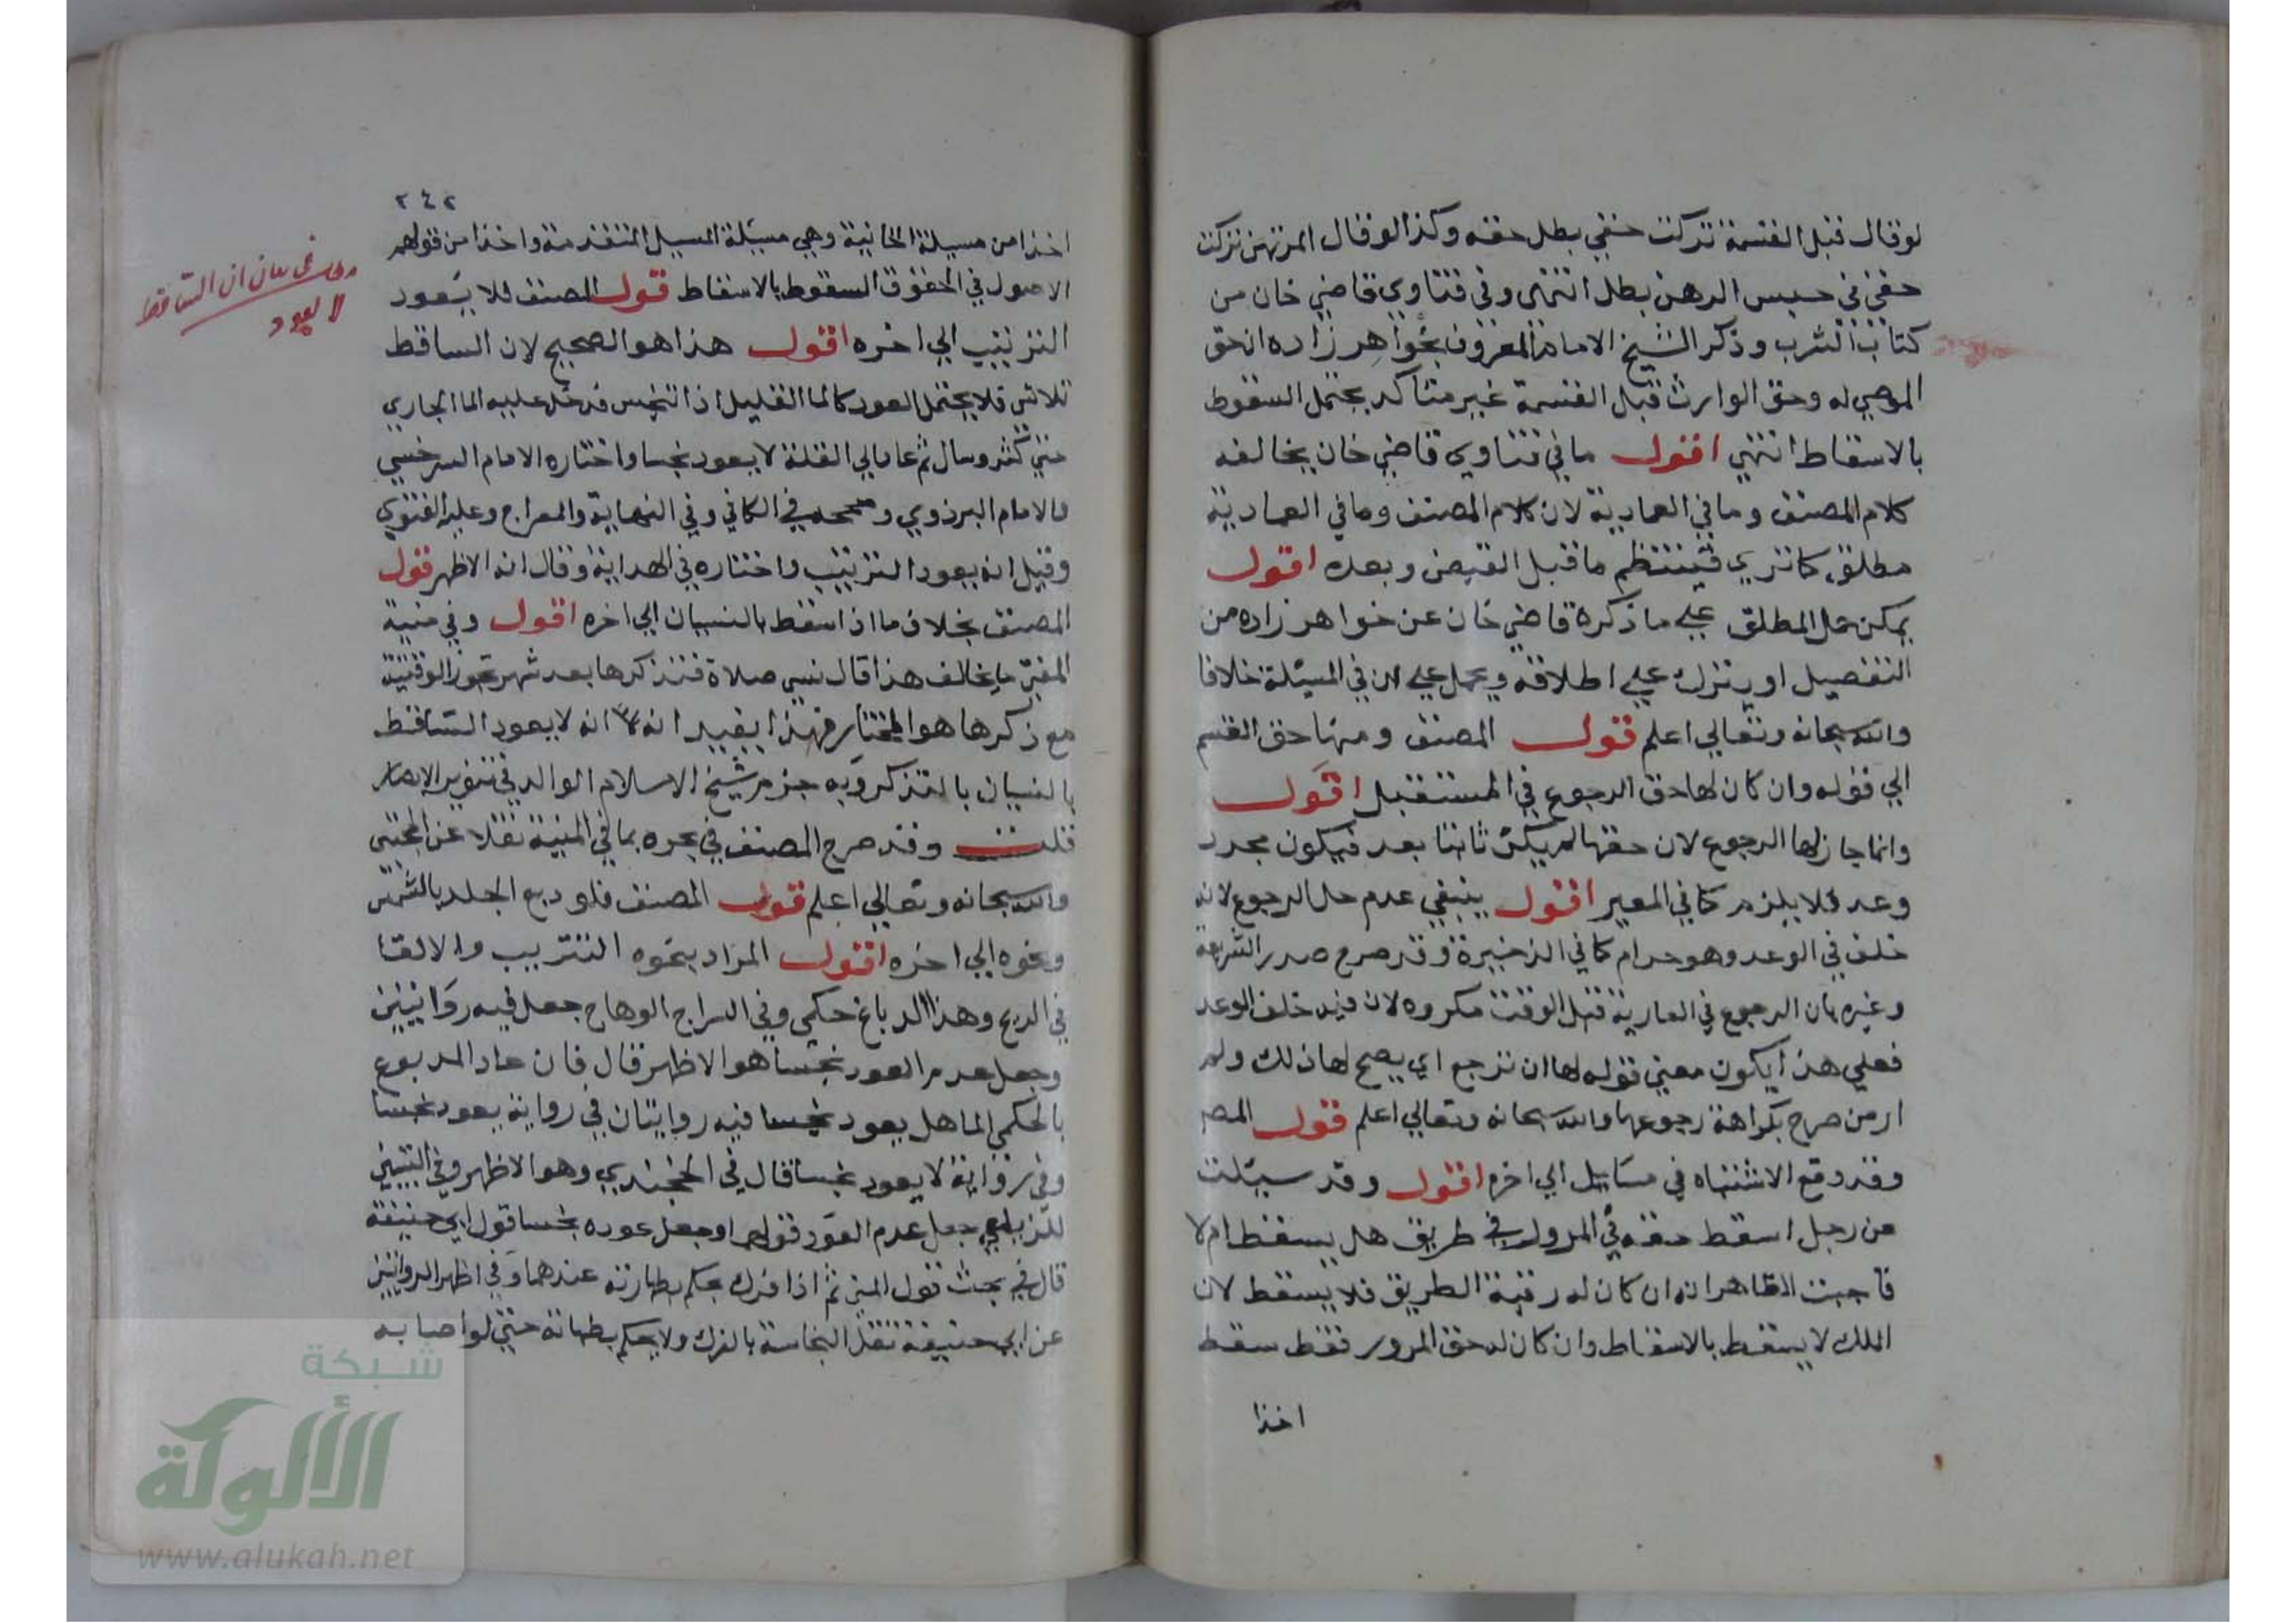 لو قال قبل القسمة تركت حقي بطل حقه وكذا لو قال المرتهن تركت
حقي في حبس الرهن بطل انتهى وفي فتاوي قاضي خان من
كتاب الشرب وذكر الشيخ الامام المعروف بخواهر زاده ان حق
الموصي له وحق الوارث قبل القسمة غير متاكد يحتمل السقوط
بالاسقاط انتهي اقول ما في فتاوي قاضي خان يخالفه
كلام المصنف وما في العمادية لان كلام المصنف وما في العمادية
مطلق كما تري فينتظم ما قبل القبض وبعده اقول
يمكن حمل المطلق علي ما ذكره قاضي خان عن خواهر زاده من
التفصيل او يترك علي اطلاقه ويحمل علي ان في المسئلة خلافا
والله سبحانه وتعالي اعلم قول المصنف ومنها حق القسم
الي قوله وان كان لها حق الرجوع في المستقبل اقول
وانما جاز لها الرجوع لان حقها لم يكن ثابتا بعد فيكون مجرد
وعد فلا يلزم كما في المعير اقول ينبغي عدم حل الرجوع لانه
خلف في الوعد وهو حرام كما في الذخيرة وقد صرح صدر الشريعة
وغيره بان الرجوع في العارية قبل الوقت مكروه لان فيه خلف الوعد
فعلي هذا يكون معني قوله لها ان ترجع اي يصح لها ذلك ولم
ار من صرح بكراهة رجوعها والله سبحانه وتعالي اعلم قول المص
وقد وقع الاشتباه في مسايل الي اخره اقول وقد سيلت
عن رجل اسقط حقه في المرور في طريق هل يسقط ام لا
فاجبت الظاهر انه ان كان له رقبة الطريق فلا يسقط لان
الملك لا يسقط بالاسقاط وان كان له حق المرور فقط سقط
اخذا
٢٤٢
اخذا من مسيلة الخانية وهي مسئلة المسيل المتقدمة واخذا من قولهم
الاصول في الحقوق السقوط بالاسقاط قول المصنف فلا يعود
الترتيب الي اخره اقول هذا هو الصحيح لان الساقط
تلاشي فلا يحتمل العود كالما القليل اذا تنجس فدخل عليه الما الجاري
حتي كثر وسال ثم عاد الي القلة لا يعود نجسا واختاره الامام السرخسي
والامام البزدوي وصححه في الكافي وفي النهاية والمعراج وعليه الفتوي
وقيل انه يعود الترتيب واختاره في الهداية وقال انه الاظهر قول
المصنف بخلاف ما اذا سقط بالنسيان الي اخره اقول وفي منية
المفتي ما يخالف هذا قال نسي صلاة فتذكرها بعد شهر تجوز الوقتية
مع ذكرها هو المختار فهذا يفيد انه لا يعود الساقط
بالنسيان بالتذكر وبه جزم شيخ الاسلام الوالد في تنوير الابصار
قلت وقد صرح المصنف في بحره بما في المنية نقلا عن المجتبي
والله سبحانه وتعالي اعلم قول المصنف فلو دبغ الجلد بالشمس
ونحوه الي اخره اقول المراد بنحوه التتريب والالقا
في الريح وهذا الدباغ حكمي وفي السراج الوهاج جعل فيه روايتين
وجعل عدم العود نجسا هو الاظهر قال فان عاد المدبوغ
بالحكمي الما هل يعود نجسا فيه روايتان في رواية يعود نجسا
وفي رواية لا يعود نجسا قال في الخجندي وهو الاظهر وفي التبيين
للزيلعي جعل عدم العود قولهما وجعل عوده نجسا قول ابي حنيفة
قال في بحث قول المني ثم اذا فرك يحكم بطهارته عندهما وفي اظهر الروايتين
عن ابي حنيفة تقل النجاسة بالفرك ولا يحكم بطهارته حتي لو اصابه
في بيان ان الساقط
لا يعود
شبكة
الألوكة
www.alukah.net